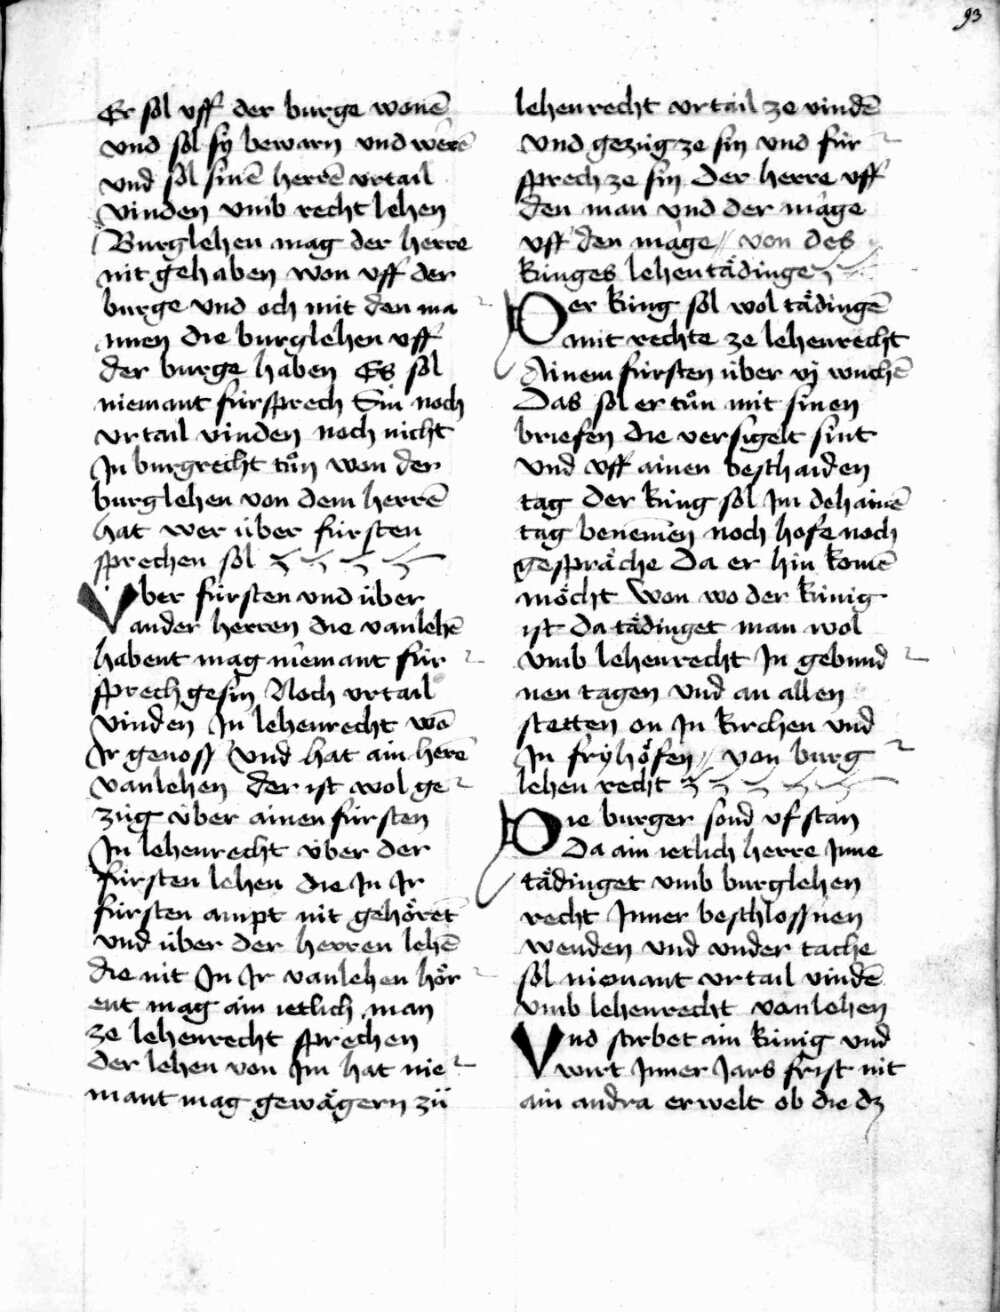 93
Er sol vff der burge wonē
vnd sol sÿ bewarn vnd werē
vnd sol sinē herrē vrtail
vinden vmb recht lehen
Burglehen mag der herre
nit gehaben won vff der
burge vnd och mit den ma
nnen die burglehen vff
der burge haben Es sol
niemant fürsprech Sin noch
vrtail vinden noch nicht
Jn burgrecht tůn won der
burglehen von dem herrē
hat wer über fürsten
sprechen sol
Vber fürsten vnd über
ander herren die vanlehē
habent mag niemant für
sprech gesin Noch vrtail
vinden Jn lehenrecht wō
Jr genoss Vnd hat ain herē
vanlehen der ist wol ge
züg über ainen fürsten
Jn lehenrecht über der
fürsten lehen die Jn Jr
fürsten ampt nit gehörēt
vnd über der herren lehē
die nit Jn Jr vanlehen hör
ent mag ain ietlich man
ze lehenrecht sprechen
der lehen von Jm hat nie
mant mag gewägern zü
lehenrecht vrtail ze vindē
vnd gezüg ze sin vnd für
sprech ze sin der herre vff
den man vnd der mage
vff den mage // von des
kinges lehentädinge
Der king sol wol tädingē
mit rechte ze lehenrecht
Ainem fürsten über vj wuchē
Das sol er tůn mit sinen
briefen die versigelt sint
vnd vff ainen beschaiden
tag der king sol Jm dehainē
tag benemen noch hofe noch
gespräche Da er hin komē
möcht Won wo der künig
ist da tädinget man wol
vmb lehenrecht Jn gebund
nen tagen vnd an allen
stetten on Jn kirchen vnd
Jn frÿhöfen // von burg
lehen recht
Die burger sond vf stan
Da ain ietlich herre Jnne
tädinget vmb burglehen
recht Jnner beschlossnen
wenden vnd vnder tache
sol niemant vrtail vindē
vmb lehenrecht vanlehen
Vnd stirbet ain künig vnd
wirt Jnner Jars frist nit
ain andra erwelt ob die dz